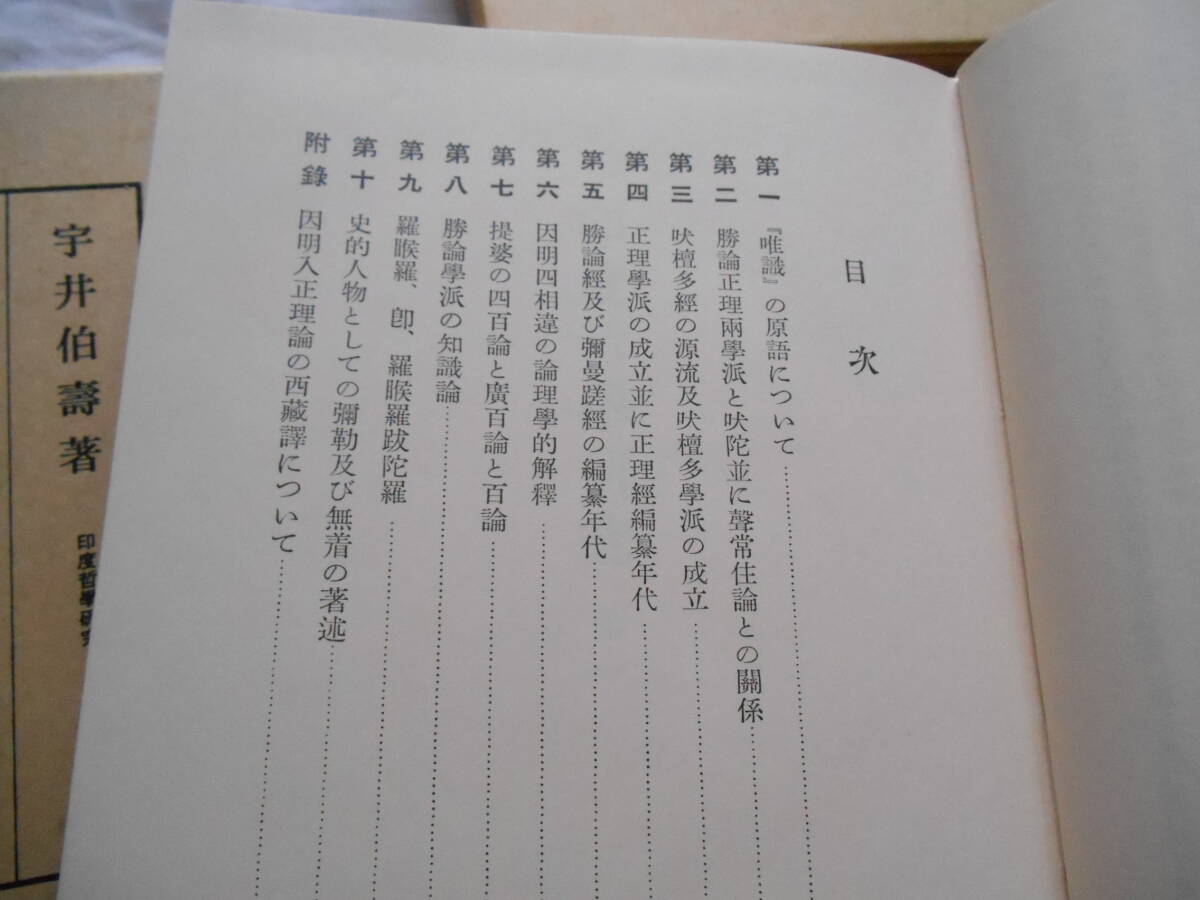 目次
第一 『唯識』の原語について
第二 勝論正理兩學派と吠陀並に聲常住論との關係
第三 吠檀多經の源流及吠檀多學派の成立
第四 正理學派の成立並に正理經編纂年代
第五 勝論經及び彌曼蹉經の編纂年代
第六 因明四相違の論理學的解釋
第七 提婆の四百論と廣百論と百論
第八 勝論學派の知識論
第九 羅睺羅、卽、羅睺羅跋陀羅
第十 史的人物としての彌勒及び無着の著述
附錄 因明入正理論の西藏譯について
宇井伯壽著
印度哲學研究